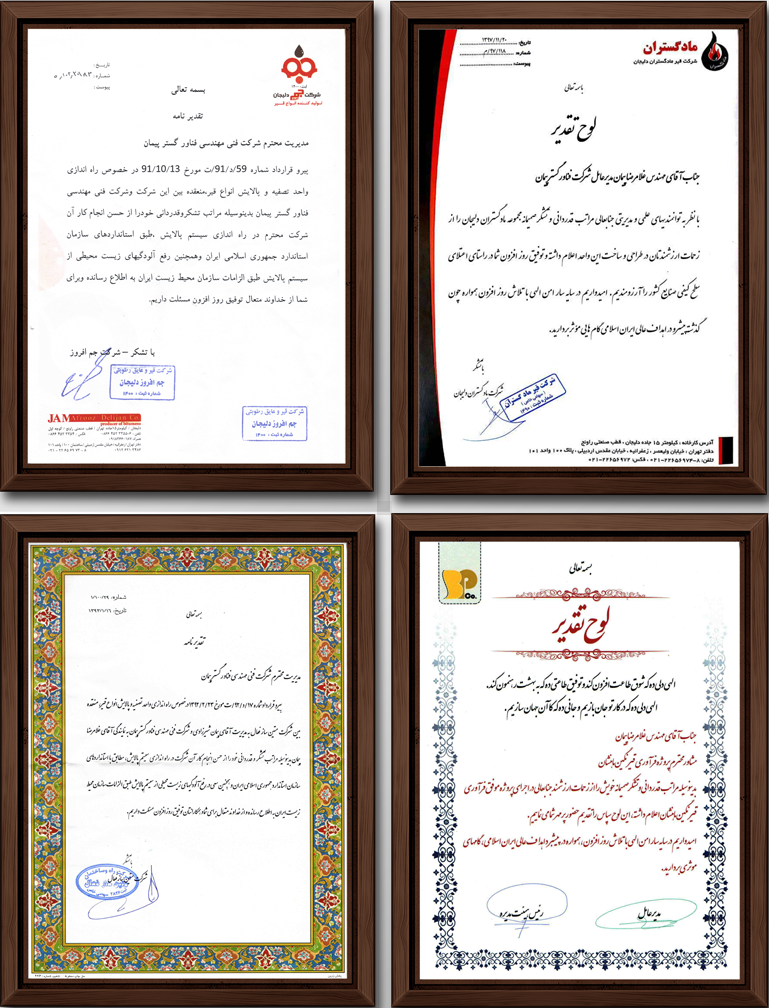 تاریخ:
شماره: ۱۰۲/۲۰۸۸۳/ص
پیوست:
شرکت جم دلیجان
تولید کننده انواع قیر
بسمه تعالی
تقدیر نامه
مدیریت محترم شرکت فنی مهندسی فناور گستر پیمان
پیرو قرارداد شماره 59/د/91/ت مورخ 91/10/13 در خصوص راه اندازی
واحد تصفیه و پالایش انواع قیر،منعقده بین این شرکت وشرکت فنی مهندسی
فناور گستر پیمان بدینوسیله مراتب تشکروقدردانی خودرا از حسن انجام کار آن
شرکت محترم در راه اندازی سیستم پالایش ،طبق استانداردهای سازمان
استاندارد جمهوری اسلامی ایران وهمچنین رفع آلودگیهای زیست محیطی از
سیستم پالایش طبق الزامات سازمان محیط زیست ایران به اطلاع رسانده وبرای
شما از خداوند متعال توفیق روز افزون مسئلت داریم.
با تشکر – شرکت جم افروز
شرکت قیر و عایق رطوبتی
جم افروز دلیجان
شماره ثبت : ۱۴۰۰
شرکت قیر و عایق رطوبتی
جم افروز دلیجان
شماره ثبت : ۱۴۰۰
JAM Afrouz Delijan Co.
producer of bitumens
تاریخ: ۱۳۹۷/۱۱/۲۰
شماره: ۹۷/۱۱۸/م
پیوست:
مادگستران
شرکت قیر مادگستران دلیجان
باسمه تعالی
لوح تقدیر
جناب آقای مهندس غلامرضا پیمان مدیرعامل شرکت فناور گستر پیمان
با نظر به توانمندیهای علمی و مدیریتی جنابعالی مراتب قدردانی و تشکر صمیمانه مجموعه مادگستران دلیجان را از
زحمات ارزشمندتان در طراحی و ساخت این واحد اعلام داشته و توفیق روز افزون شما در راستای اعتلای
سطح کیفی صنایع کشور را آرزومندیم. امیدواریم در سایه سار امن الهی با تلاش روز افزون همواره چون
گذشته پیشرو در اهداف عالی ایران اسلامی گام هایی موثر بردارید.
باتشکر
شرکت مادگستران دلیجان
شرکت قیر مادگستران
آدرس کارخانه: کیلومتر ۱۵ جاده دلیجان ، قطب صنعتی راونج
دفتر تهران : خیابان ولیعصر ، زعفرانیه ، خیابان مقدس اردبیلی ، پلاک ۱۰۰ واحد ۱۰۱
تلفن: ۸-۰۲۱-۲۲۶۵۶۹۷۴ ، فکس: ۰۲۱-۲۲۶۵۶۹۷۲
شماره: ۱/۱۰۰/۲۹
تاریخ: ۱۳۹۳/۱/۱۶
بسمه تعالی
تقدیر نامه
مدیریت محترم شرکت فنی مهندسی فناور گستر پیمان
پیرو قرارداد شماره در خصوص راه اندازی واحد تصفیه و پالایش انواع قیر، منعقده
بین شرکت متین ساز فعال به مدیریت آقای پیمان شیرزادی و شرکت فنی مهندسی فناور گستر پیمان به نمایندگی آقای غلامرضا
پیمان بدینوسیله مراتب تشکر و قدردانی خود را از حسن انجام کار آن شرکت در راه اندازی سیستم پالایش، مطابق با استانداردهای
سازمان استاندارد جمهوری اسلامی ایران و همچنین سعی در رفع آلودگیهای زیست محیطی از سیستم پالایش طبق الزامات سازمان محیط
زیست ایران، به اطلاع رسانده و از خداوند متعال برای شما و همکارانتان توفیق روز افزون مسئلت داریم.
باتشکر
بسمه تعالی
لوح تقدیر
الهی دلی ده که شوق طاعت افزون کند و توفیق طاعتی ده که به بهشت رهنمون کند.
الهی دلی ده که در کار تو جان بازیم و جانی ده که کار آن جهان سازیم.
جناب آقای مهندس غلامرضا پیمان
مشاور محترم پروژه فرآوری قیر نگین بافشان
بدینوسیله مراتب قدردانی و تشکر صمیمانه خویش را از زحمات ارزشمند جنابعالی در اجرای پروژه موفق فرآوری
قیر نگین بافشان اعلام داشته، این لوح سپاس را تقدیم حضور پر مهر شما می نماییم.
امیدواریم در سایه سار امن الهی با تلاش روز افزون، همواره در پیشبرد اهداف عالی ایران اسلامی، گامهای
موثری بردارید.
مدیرعامل
رئیس هیئت مدیره